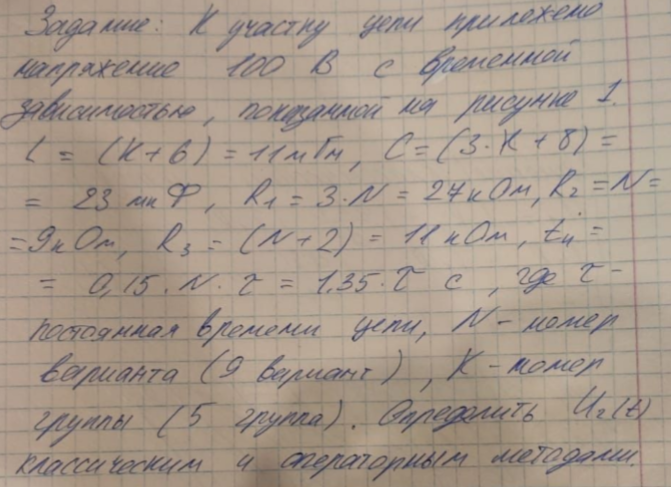 Задание: К участку цепи приложено
напряжение 100 В с временной
зависимостью, показанной на рисунке 1.
L = (K+6) = 11 мГн, C = (3·K+8) =
= 23 мкФ, R1 = 3·N = 27 кОм, R2 = N =
= 9 кОм, R3 = (N+2) = 11 кОм, tи =
= 0,15·N·τ = 1,35·τ с, где τ -
постоянная времени цепи, N - номер
варианта (9 вариант), K - номер
группы (5 группа). Определить U2(t)
классическим и операторным методами.